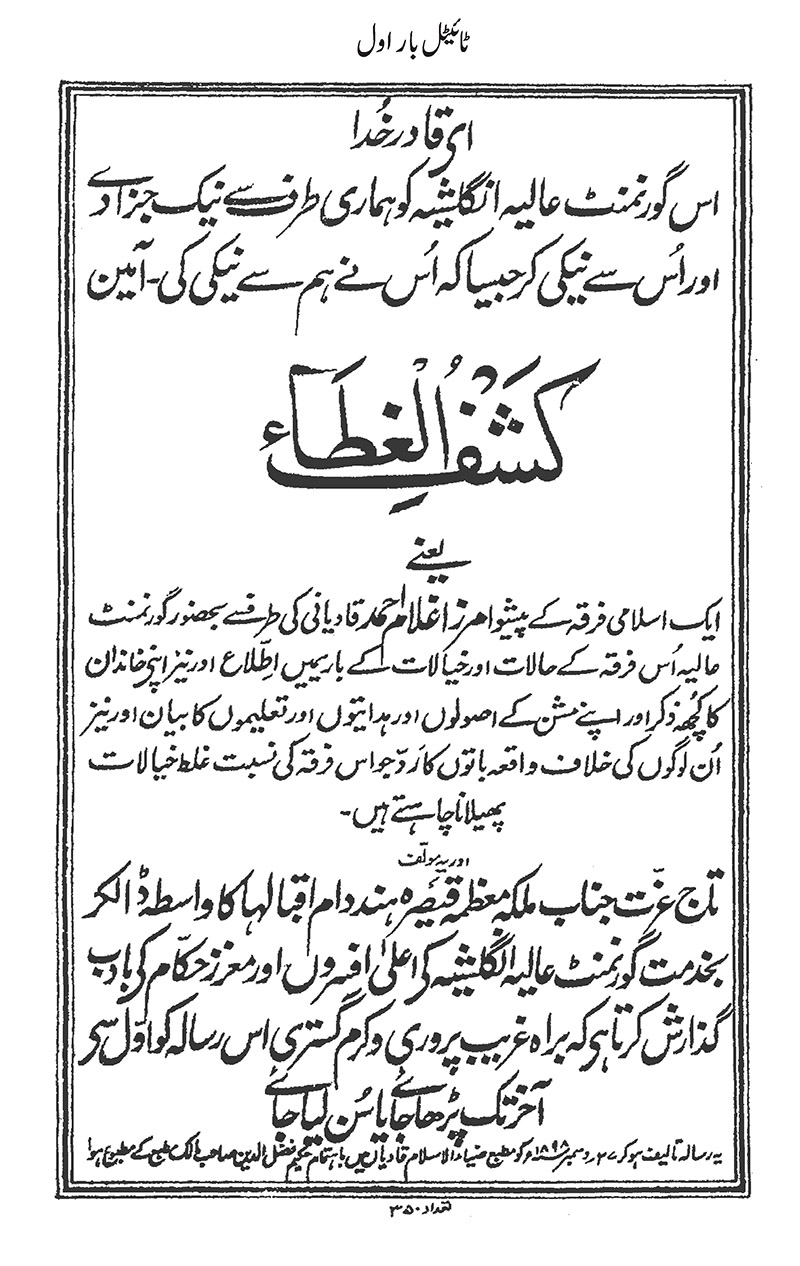 ٹائیٹل بار اول
ای قادر خُدا
اس گورنمنٹ عالیہ انگلشیہ کو ہماری طرف سے نیک جزا دے
اور اُس سے نیکی کر جیسا کہ اُس نے ہم سے نیکی کی۔ آمین
کَشْفُ الْغِطَاء
یعنے
ایک اسلامی فرقہ کے پیشوا مرزا غلام احمد قادیانی کی طرف سے بحضور گورنمنٹ
عالیہ اُس فرقہ کے حالات اور خیالات کے بارہ میں اطّلاع اور نیز اپنے خاندان
کا کُچھ ذکر اور اپنے مشن کے اصولوں اور ہدایتوں اور تعلیموں کا بیان اور نیز
اُن لوگوں کی خلاف واقعہ باتوں کا ردّ جو اس فرقہ کی نسبت غلط خیالات
پھیلانا چاہتے ہیں۔
اور یہ مولّف
تاج عزّت جناب ملکہ معظمہ قیصرہ ہند دام اقبالہا کا واسطہ ڈالکر
بخدمت گورنمنٹ عالیہ انگلشیہ کی اعلیٰ افسروں اور معزز حکّام کی بادب
گذارش کرتا ہی کہ براہ غریب پروری و کرم گستری اس رسالہ کو اوّل سی
آخر تک پڑھا جائے یا سُن لیا جائے
یہ رسالہ تالیف ہو کر ۲۷؍ دسمبر ۱۸۹۸ء کو مطبع ضیاء الاسلام قادیاں میں باہتمام حکیم فضل الدین صاحب مالک مطبع کے مطبوع ہوا
تعداد ۳۵۰